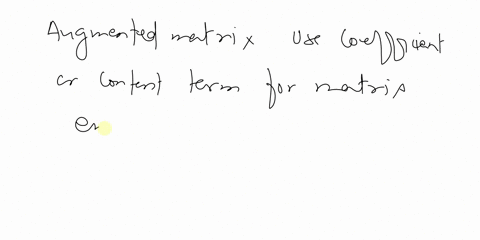 Augmented matrix use coefficient
or content term for matrix
en